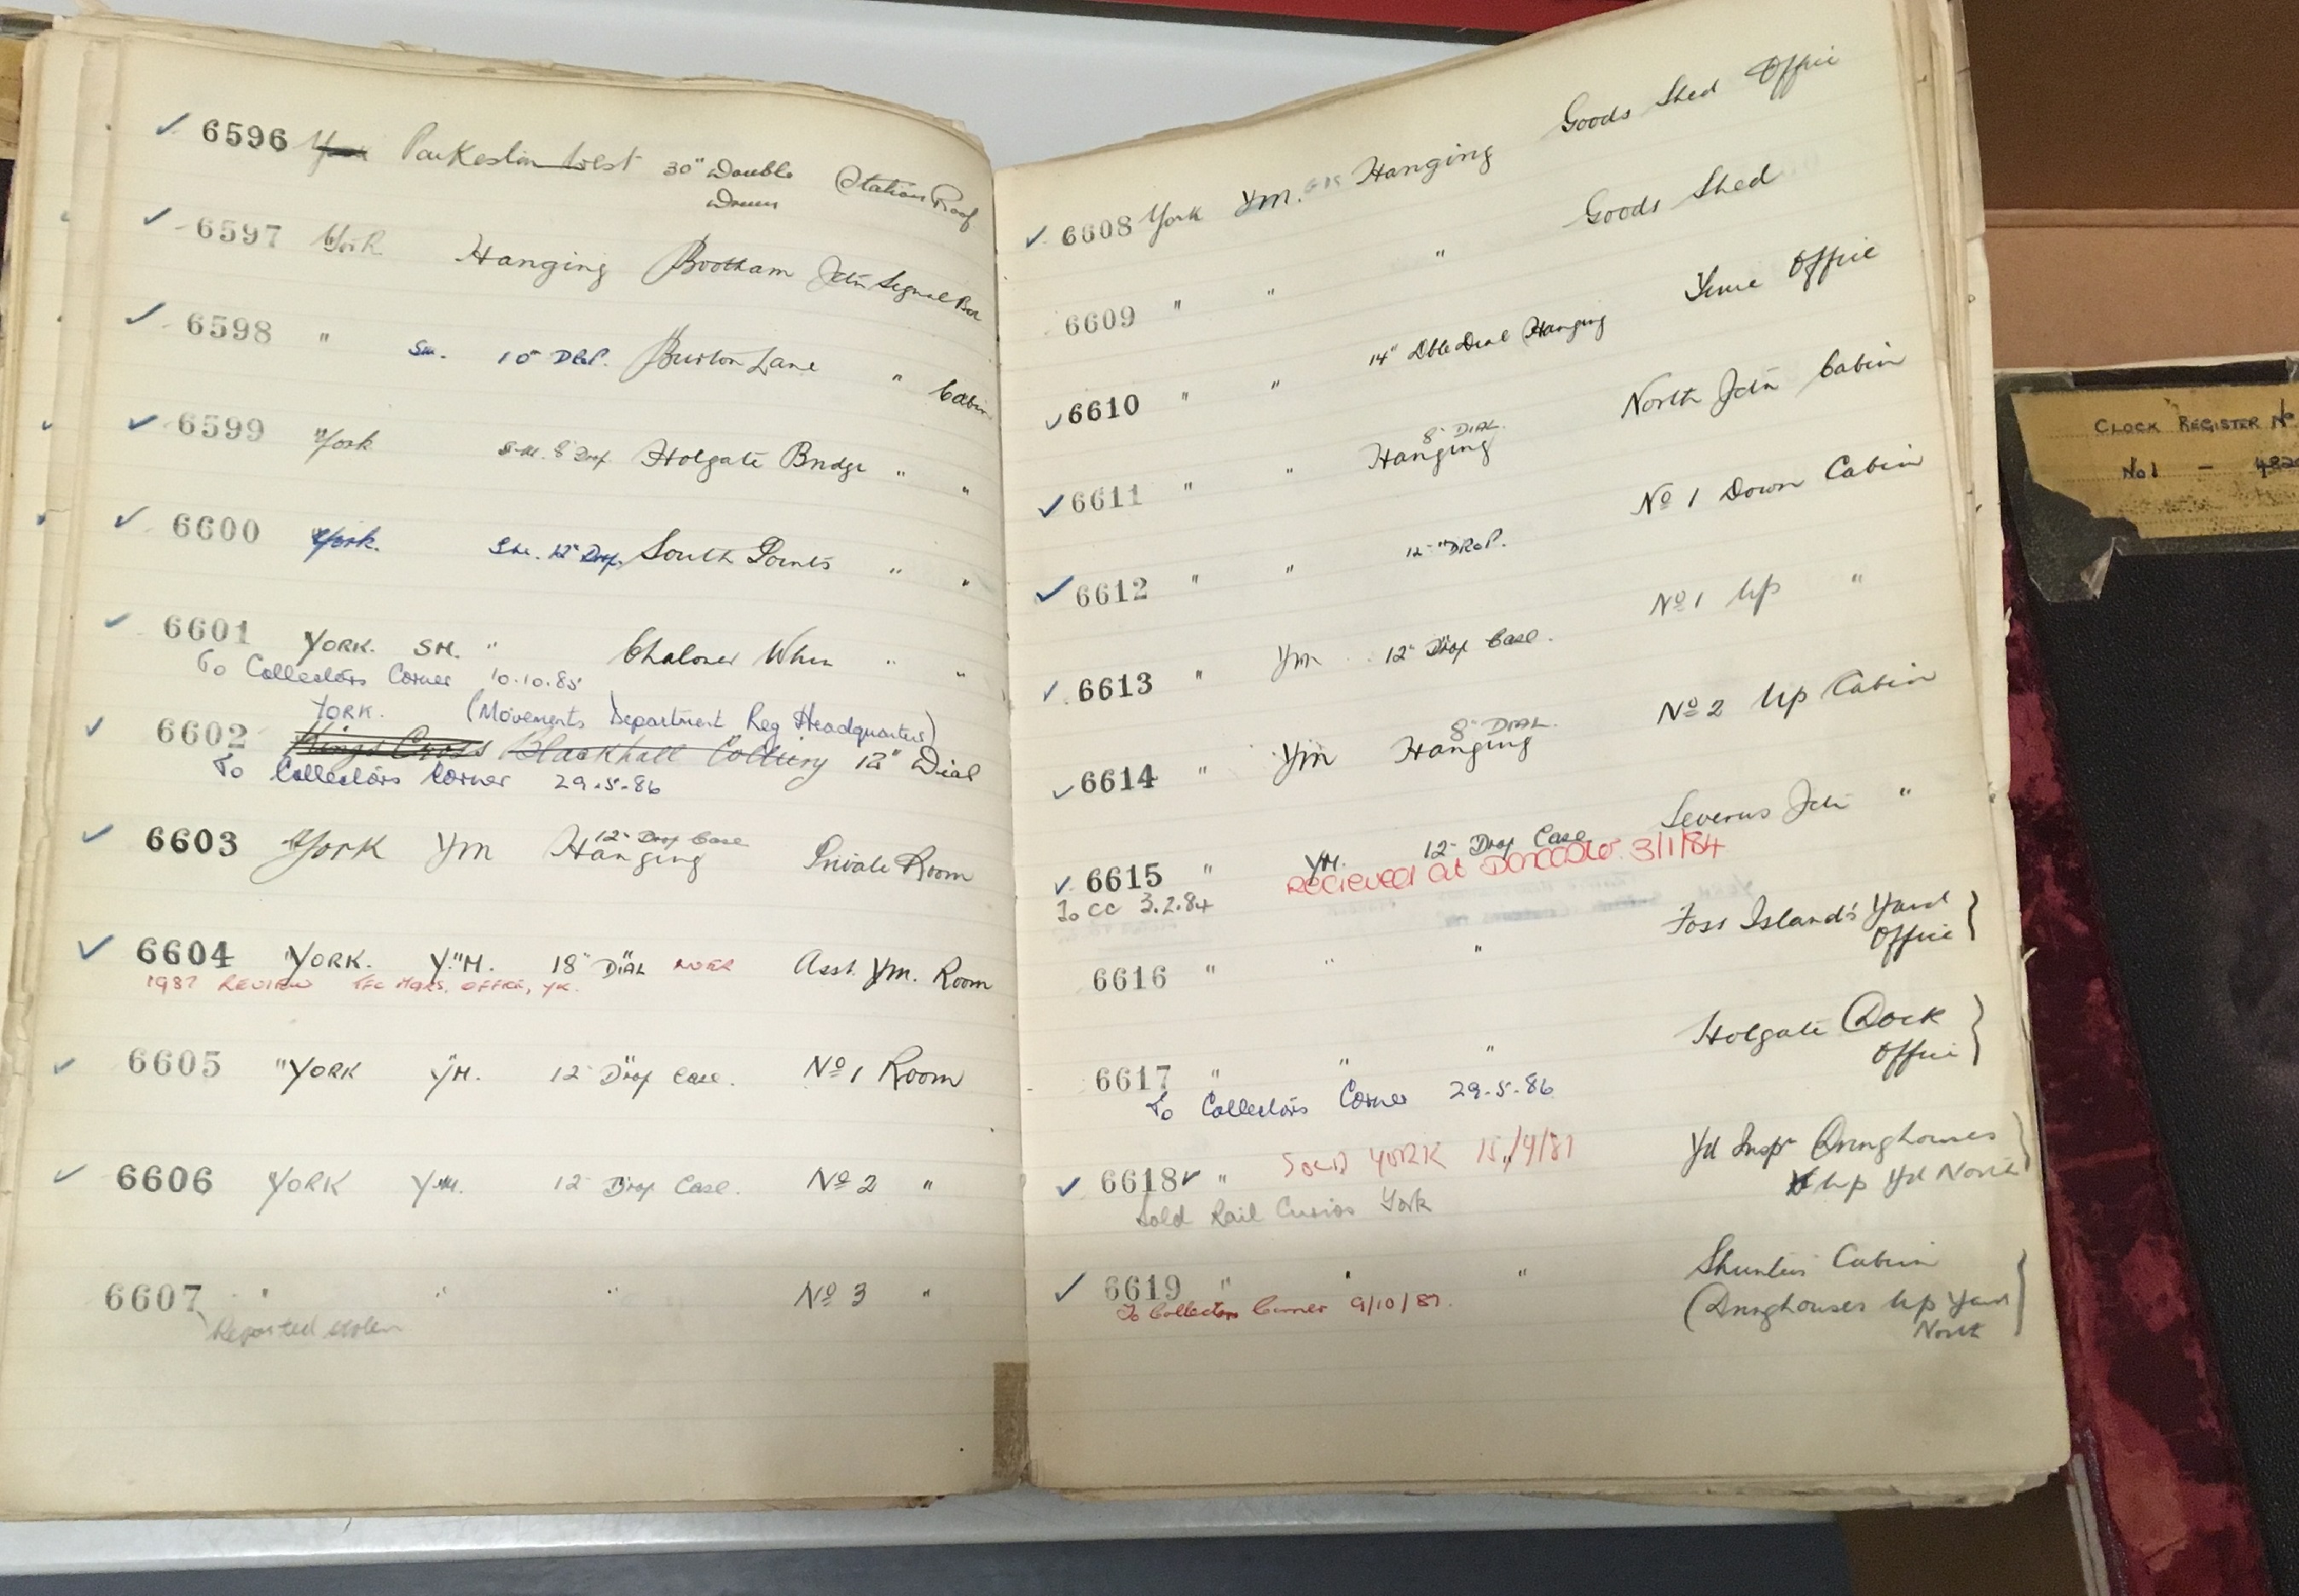 6596 York Parkeston West 30" Double Station Roof
Drum
6597 York Hanging Bootham Jctn Signal Box
6598 " SM. 10" DROP. Burton Lane " Cabin
6599 York S.M. 8" Drop Holgate Bridge " "
6600 York. S.M. 12" Drop. South Points " "
6601 YORK. SM. " Chaloner Whin " "
To Collectors Corner 10.10.85
YORK. (Movements Department Reg Headquarters)
6602 Kings Cross Blackhall Colliery 12" Dial
To Collectors Corner 29.5.86
12" Drop Case
6603 York Ym Hanging Private Room
6604 YORK. Y.M. 18" DIAL NER Asst. Ym. Room
1987 REVIEW TFC MGRS. OFFICE, YK.
6605 YORK YM. 12" Drop Case. No 1 Room
6606 YORK YM. 12" Drop Case. No 2 "
6607 " " " No 3 "
Reported stolen
6608 York Ym. Hanging Goods Shed Office
6609 " " " Goods Shed
6610 " " 14" Dble Dial Hanging Time Office
8" DIAL.
6611 " " Hanging North Jctn Cabin
6612 " " 12" DROP. No 1 Down Cabin
6613 " Ym 12" Drop Case. No 1 Up "
8" DIAL.
6614 " Ym Hanging No 2 Up Cabin
6615 " YM. 12" Drop Case Severus Jctn "
RECIEVED At DONCASTER 3/1/84
To CC 3.2.84
6616 " " " Foss Islands Yard
Office
6617 " " " Holgate Dock
Office
To Collectors Corner 29.5.86
6618 " SOLD YORK 15/9/81 Yd Inspr Dringhouses
Up Yd North
Sold Rail Curios York
6619 " " " Shunters Cabin
(Dringhouses Up Yard
North
To Collectors Corner 9/10/87.
CLOCK REGISTER No
No 1 -